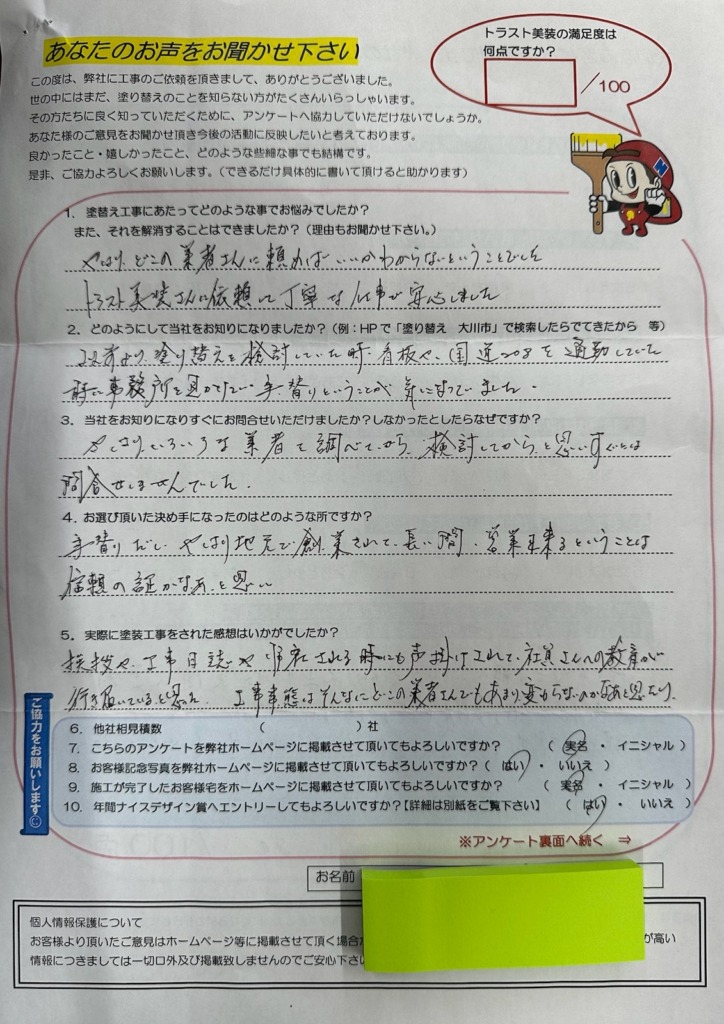 あなたのお声をお聞かせ下さい
トラスト美装の満足度は
何点ですか?
/100
この度は、弊社に工事のご依頼を頂きまして、ありがとうございました。
世の中にはまだ、塗り替えのことを知らない方がたくさんいらっしゃいます。
その方たちに良く知っていただくために、アンケートへ協力していただけないでしょうか。
あなた様のご意見をお聞かせ頂き今後の活動に反映したいと考えております。
良かったこと・嬉しかったこと、どのような些細な事でも結構です。
是非、ご協力よろしくお願いします。(できるだけ具体的に書いて頂けると助かります)
1. 塗替え工事にあたってどのような事でお悩みでしたか?
また、それを解消することはできましたか?(理由もお聞かせ下さい。)
やはり、どこの業者さんに頼めばいいかわからないということでした
トラスト美装さんに依頼して丁寧な仕事で安心しました
2. どのようにして当社をお知りになりましたか?(例:HPで「塗り替え 大川市」で検索したらでてきたから 等)
以前より、塗り替えを検討していた時、看板や、国道208を通勤していた
時に事務所を見かけていて手塗りということが気になっていました。
3. 当社をお知りになりすぐにお問合せいただけましたか?しなかったとしたらなぜですか?
やはり、いろいろな業者を調べてから、検討してから、と思いすぐには
問合せしませんでした。
4. お選び頂いた決め手になったのはどのような所ですか?
手塗りだし、やはり地元で創業されて、長い間、営業出来るということは
信頼の証かなあと思い
5. 実際に塗装工事をされた感想はいかがでしたか?
挨拶や、工事日誌や、帰社される時にも声掛けされて、社員さんへの教育が
行き届いていると思った。工事事態はそんなにどこの業者さんでもあまり変わらないのかなあと思ったり、
ご協力をお願いします
6. 他社相見積数 ( )社
7. こちらのアンケートを弊社ホームページに掲載させて頂いてもよろしいですか? ( 実名 ・ イニシャル )
8. お客様記念写真を弊社ホームページに掲載させて頂いてもよろしいですか?( はい ・ いいえ )
9. 施工が完了したお客様宅をホームページに掲載させて頂いてもよろしいですか? ( 実名 ・ イニシャル )
10. 年間ナイスデザイン賞へエントリーしてもよろしいですか?【詳細は別紙をご覧下さい】 ( はい ・ いいえ )
※アンケート裏面へ続く ⇒
お名前
個人情報保護について
お客様より頂いたご意見はホームページ等に掲載させて頂く場合が高い
情報につきましては一切口外及び掲載致しませんのでご安心下さい